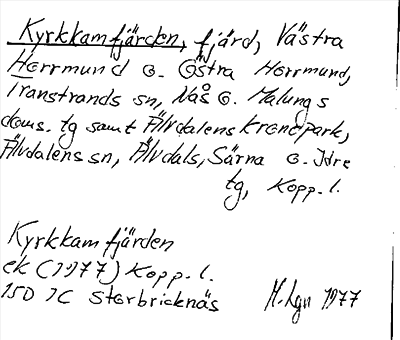 Kyrkkamfjärden, fjärd, Västra
Horrmund o. Östra Horrmund,
Transtrands sn, Nås o. Malungs
doms. tg samt Älvdalens kronopark,
Älvdalens sn, Älvdals, Särna o. Idre
tg, Kopp. l.
Kyrkkamfjärden
ek (1977) Kopp. l.
15D 7C Storbricknäs M. Lgn 1977